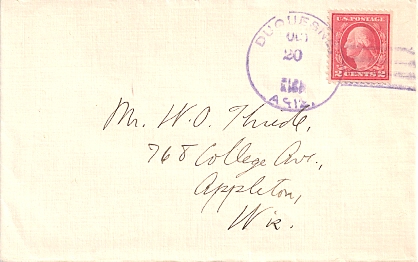 DUQUESNE
OCT
20
ARIZ.
U.S. POSTAGE
2 CENTS 2
Mr. W. O. Thiede,
768 College Ave.,
Appleton,
Wis.